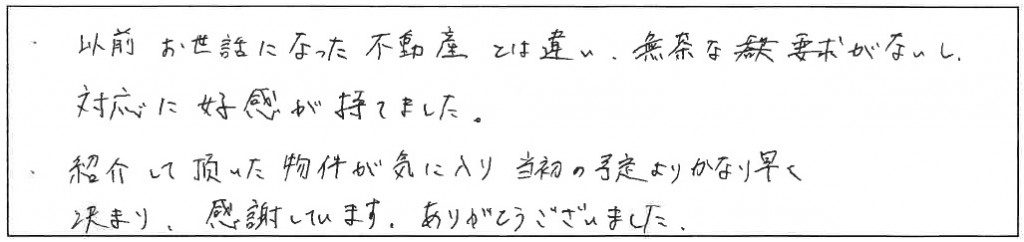 ・以前お世話になった不動産とは違い、無茶な要求がないし、
対応に好感が持てました。
・紹介して頂いた物件が気に入り当初の予定よりかなり早く
決まり、感謝しています。ありがとうございました。